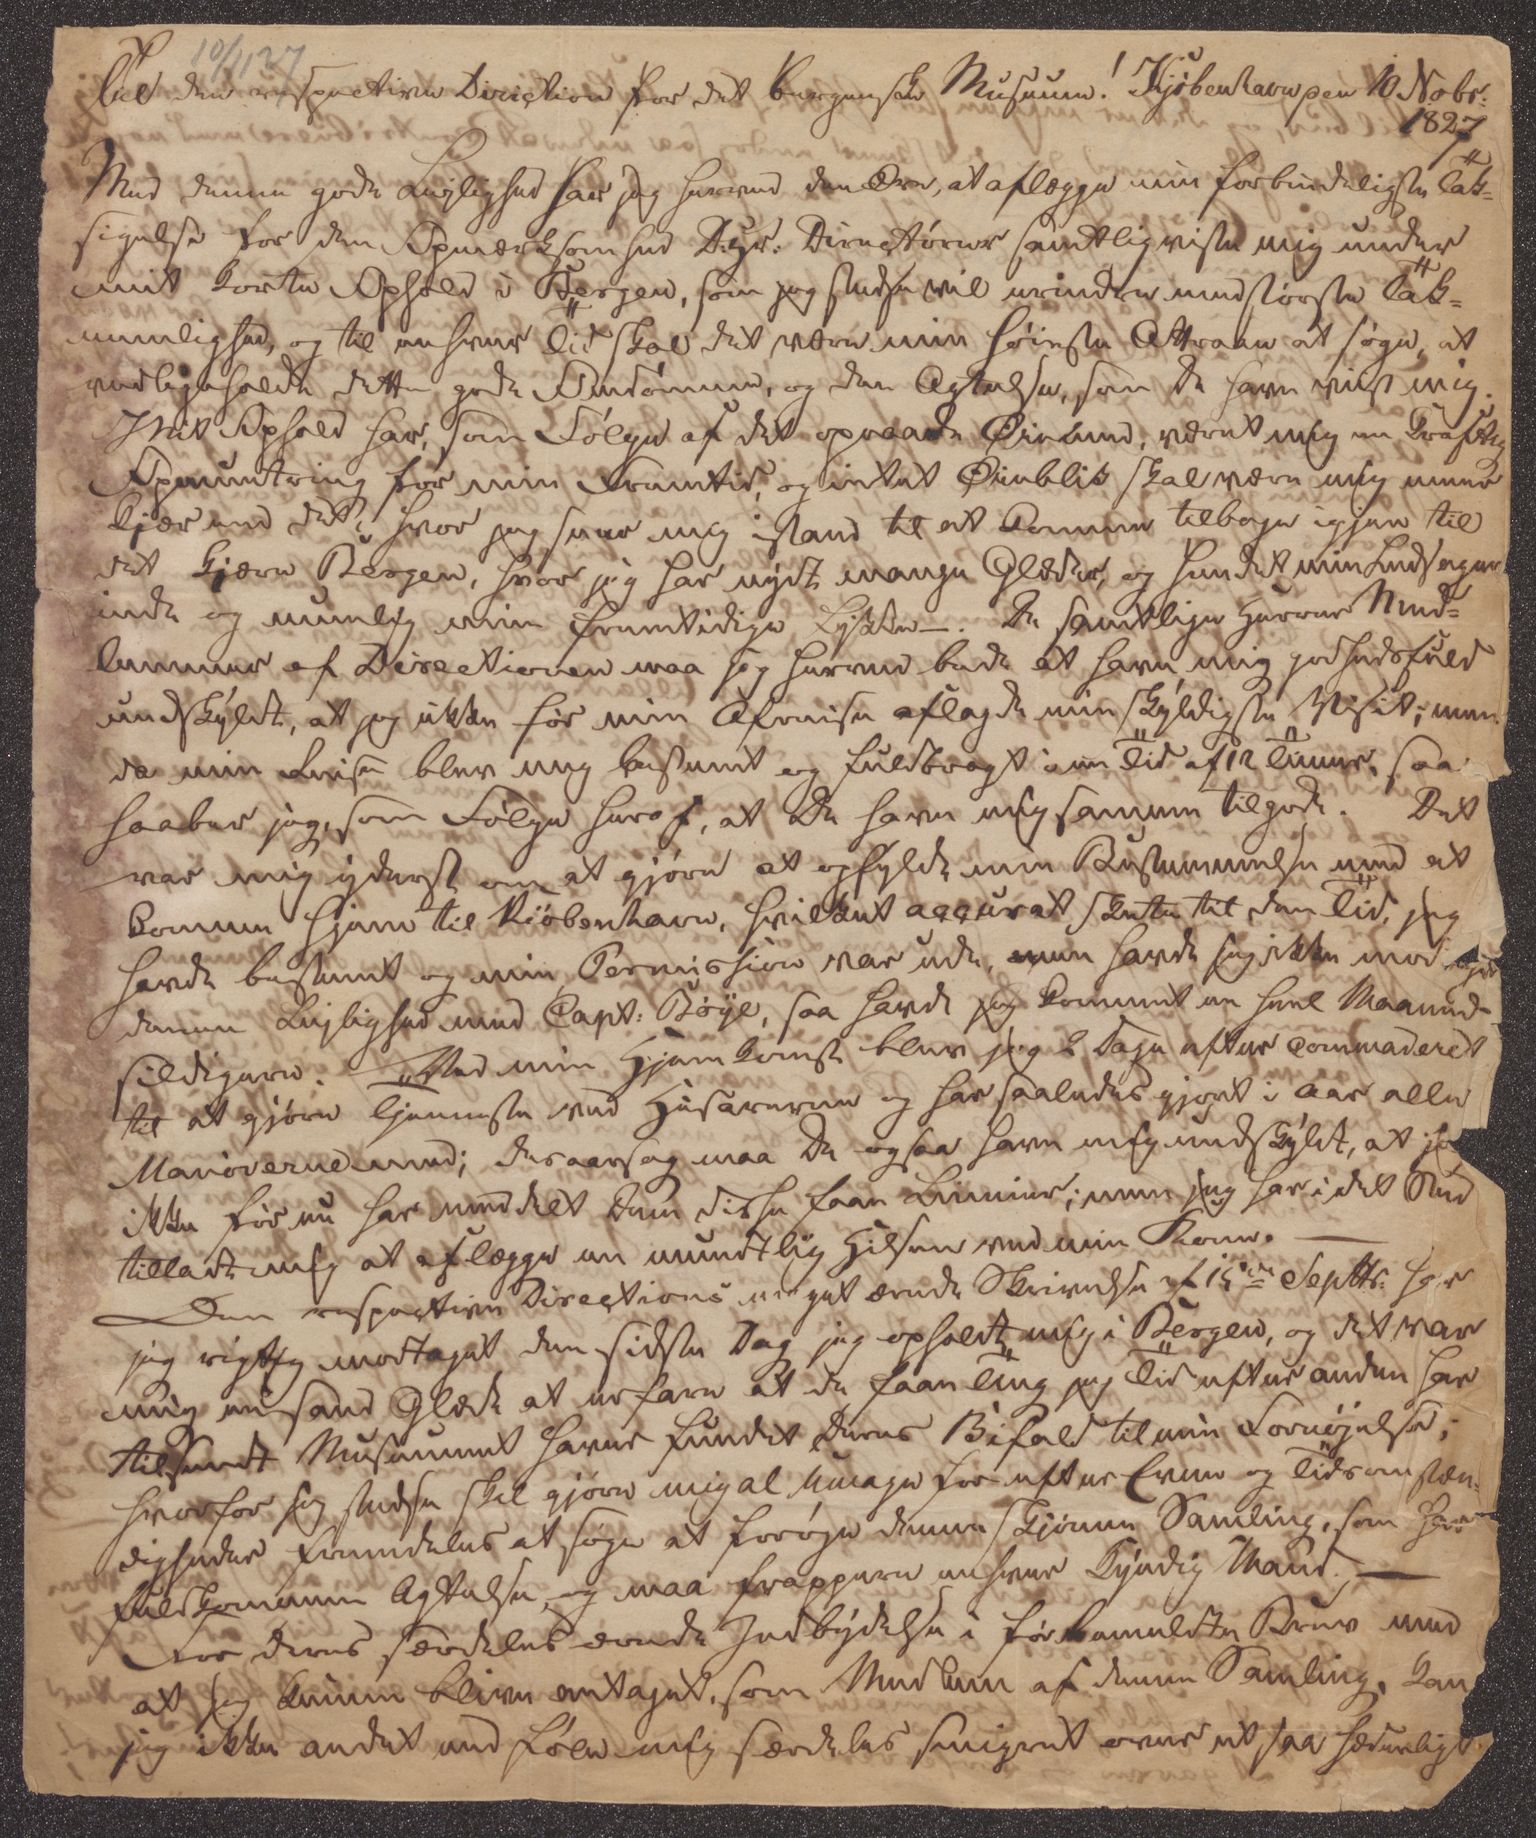 10/11 27
Til den respective Direction for det bergenske Musæum! Kjöbenhavn den 10 Nobr:
1827
Med denne gode Leilighed har jeg herved den Ære, at aflægge min forbindeligste Tak=
sigelse for den Opmærksomhed D.Hr: Directörer samtlig viste mig under
mit korte Ophold i Bergen, som jeg stedse vil erindre med største Tak=
nemlighed, og til enhver Tid skal det være min höieste Attraae at søge, at
vedligeholde dette gode Omdömme, og den Agtelse, som De have viist mig.
Mit Ophold har, som Følge af det opnaade Øiemed, været mig en kraftig
Opmuntring for min Fremtid, og intet Øieblik skal være mig mere
kjær end det, hvor jeg seer mig istand til at komme tilbage igjen til
det kjære Bergen, hvor jeg har nydt mange Glæder, og fundet min Ledsager=
inde og nemlig min fremtidige Lykke—. De samtlige Herrer Med=
lemmer af Directionen maa jeg herved bede at have mig godhedsfuld
undskyldt, at jeg ikke før min Afreise aflagde min skyldigste Visit; men
da min Reise blev mig bestemt og fuldbragt i en Tid af 12 Timer, saa
haaber jeg, som Følge heraf, at De have mig samme tilgode. Det
var mig yderst om at gjøre at opfylde min Bestemmelse med at
komme hjem til Kiöbenhavn, hvilket accurat skete til den Tid, jeg
havde bestemt og min Permission var ude, men havde jeg ikke
denne Leilighed med Capt: Böye, saa havde jeg kommet en heel Maaned
sildigere. Ved min Hjemkomst blev jeg 2 Dage efter commaderet
til at gjøre Tjeneste ved Husarerne og har saaledes gjort i Aar alle
Manöverne med; desaarsag maa De ogsaa have mig undskyldt, at jeg
ikke før nu har meddelt Dem disse faae Linnier; men jeg har i det Sted
tilladt mig at aflægge en mundtlig Hilsen ved min Kone. —
Den respective Directions meget ærede Skrivelse af 15de Septbr: har
jeg rigtig modtaget den sidste Dag jeg opholdt mig i Bergen, og det var
mig en sand Glæde at erfare at de faae Ting jeg Tid efter anden har
tilsendt Musæumet haver fundet Deres Bifald til min Fornøjelse;
hvorfor jeg stedse skal gjøre mig al Umage for efter Evne og Tidsomstæn=
digheder fremdeles at søge at forøge denne skjønne Samling, som har
fuldkommen Agtelse, og maa frappere enhver kyndig Mand. —
For deres særdeles ærede Indbydelse i førbemeldte Brev med
at jeg kunne blive antaget, som Medlem af denne Samling, kan
jeg ikke andet end føle mig særdeles smigret over et saa hæderligt